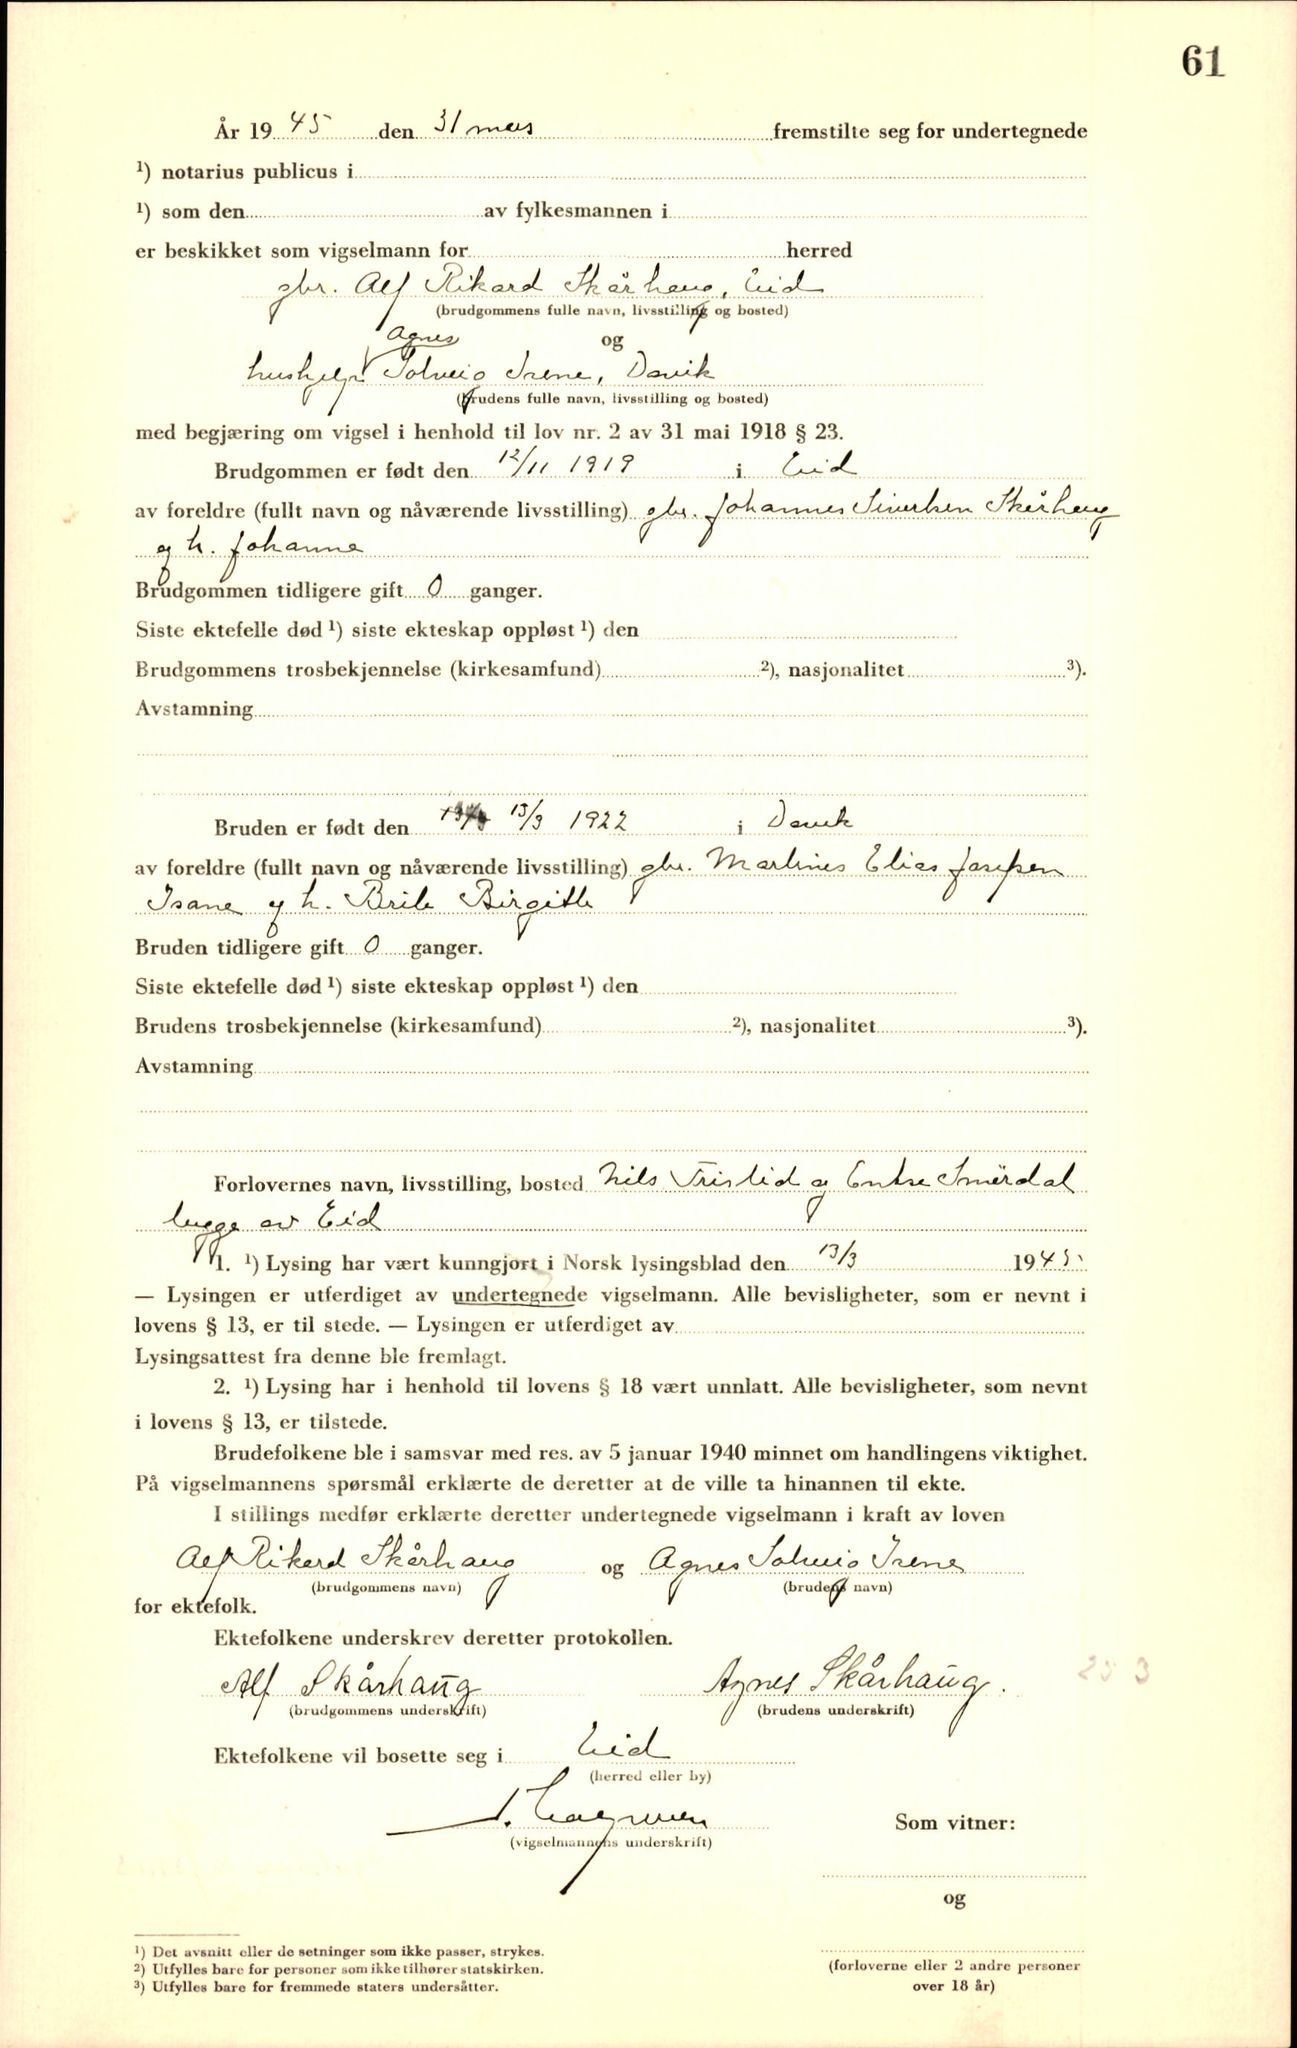 61
År 19 45 den 31 mars fremstilte seg for undertegnede
¹) notarius publicus i
¹) som den av fylkesmannen i
er beskikket som vigselmann for herred
gbr. Alf Rikard Skårhaug, Eid
(brudgommens fulle navn, livsstilling og bosted)
Agnes og
hushjelp Solveig Irene, Davik
(brudens fulle navn, livsstilling og bosted)
med begjæring om vigsel i henhold til lov nr. 2 av 31 mai 1918 § 23.
Brudgommen er født den 12/11 1919 i Eid
av foreldre (fullt navn og nåværende livsstilling) gbr. Johannes Sivertsen Skårhaug
og h. Johanne
Brudgommen tidligere gift 0 ganger.
Siste ektefelle død ¹) siste ekteskap oppløst ¹) den
Brudgommens trosbekjennelse (kirkesamfund) ²), nasjonalitet ³).
Avstamning
Bruden er født den 13/3 1922 i Davik
av foreldre (fullt navn og nåværende livsstilling) gbr. Martinus Elias Josefsen
Isane og h. Brite Birgitte
Bruden tidligere gift 0 ganger.
Siste ektefelle død ¹) siste ekteskap oppløst ¹) den
Brudens trosbekjennelse (kirkesamfund) ²), nasjonalitet ³).
Avstamning
Forlovernes navn, livsstilling, bosted Nils og
begge av Eid
1. ¹) Lysing har vært kunngjort i Norsk lysingsblad den 13/3 1945
— Lysingen er utferdiget av undertegnede vigselmann. Alle bevisligheter, som er nevnt i
lovens § 13, er til stede. — Lysingen er utferdiget av
Lysingsattest fra denne ble fremlagt.
2. ¹) Lysing har i henhold til lovens § 18 vært unnlatt. Alle bevisligheter, som nevnt
i lovens § 13, er tilstede.
Brudefolkene ble i samsvar med res. av 5 januar 1940 minnet om handlingens viktighet.
På vigselmannens spørsmål erklærte de deretter at de ville ta hinannen til ekte.
I stillings medfør erklærte deretter undertegnede vigselmann i kraft av loven
Alf Rikard Skårhaug og Agnes Solveig Irene
(brudgommens navn) (brudens navn)
for ektefolk.
Ektefolkene underskrev deretter protokollen.
Alf Skårhaug Agnes Skårhaug. 25 3
(brudgommens underskrift) (brudens underskrift)
Ektefolkene vil bosette seg i Eid
(herred eller by)
Som vitner:
(vigselmannens underskrift)
og
¹) Det avsnitt eller de setninger som ikke passer, strykes.
²) Utfylles bare for personer som ikke tilhører statskirken.
³) Utfylles bare for fremmede staters undersåtter.
(forloverne eller 2 andre personer
over 18 år)